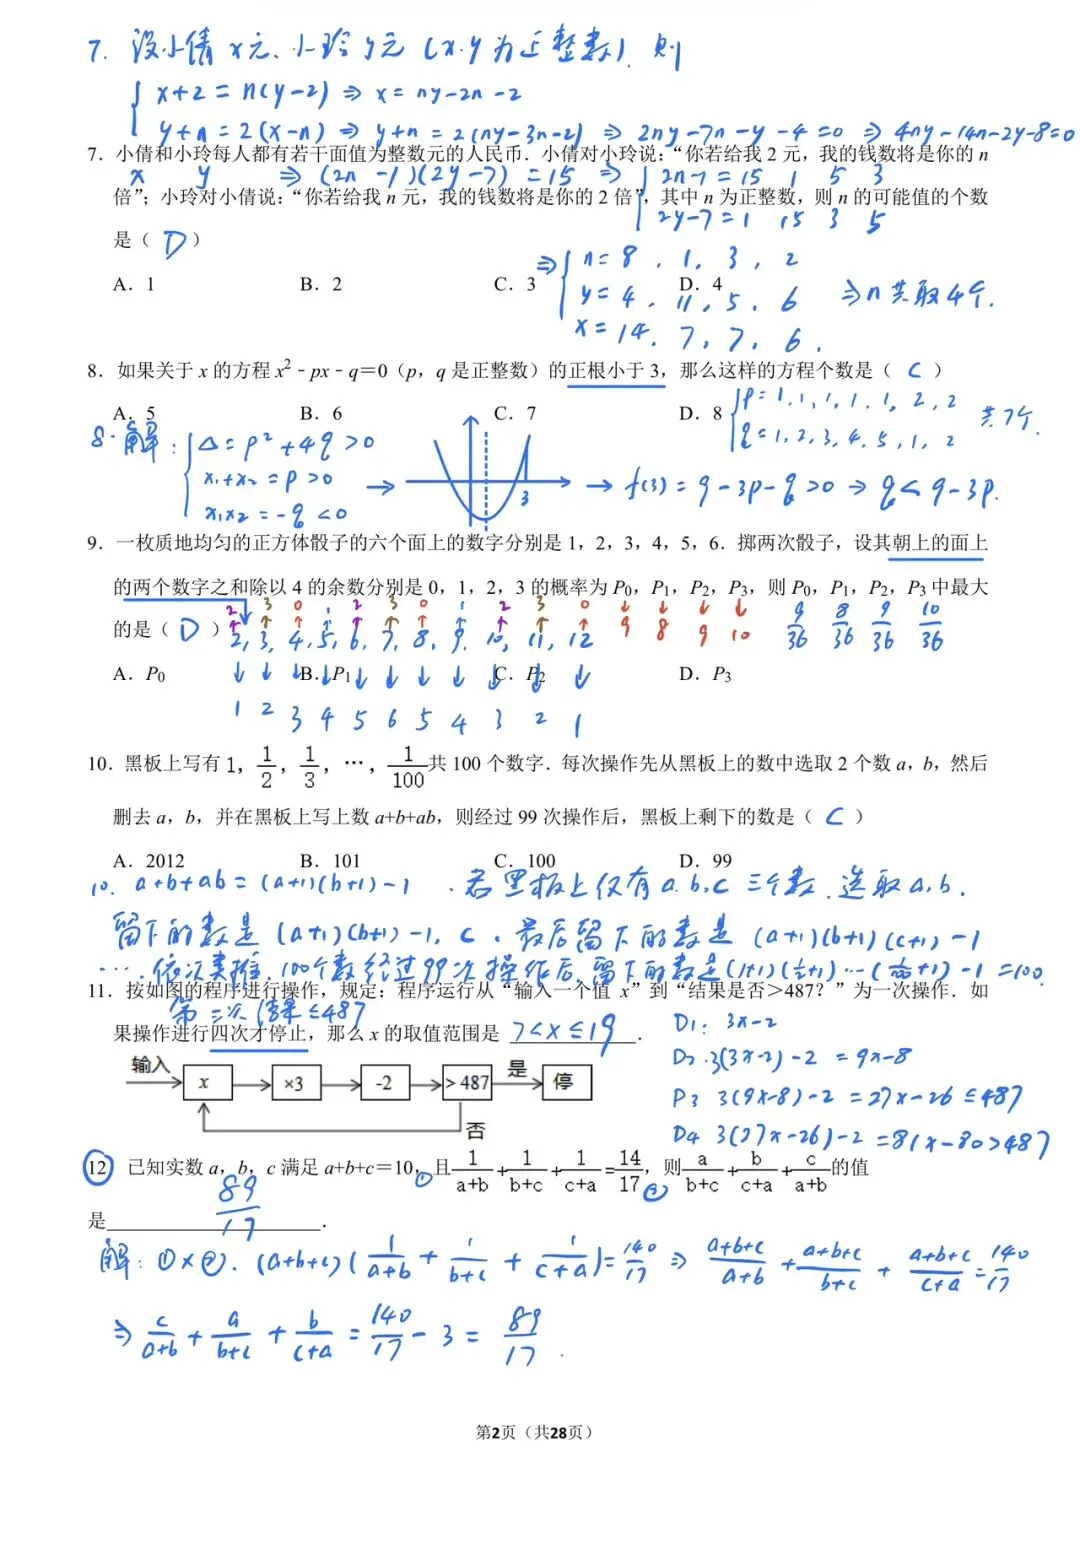 7. 设小倩x元、小玲y元(x.y为正整数).则
x+2=n(y-2)⇒x=ny-2n-2
y+n=2(x-n)⇒y+n=2(ny-3n-2)⇒2ny-7n-y-4=0⇒4ny-14n-2y-8=0
7. 小倩和小玲每人都有若干面值为整数元的人民币．小倩对小玲说：“你若给我2元，我的钱数将是你的n
x y ⇒(2n-1)(2y-7)=15⇒ 2n-1=15 1 5 3
倍”；小玲对小倩说：“你若给我n元，我的钱数将是你的2倍”，其中n为正整数，则n的可能值的个数
2y-7=1 15 3 5
是（ D ）
⇒ n=8, 1, 3, 2
A．1 B．2 C．3 D．4
y=4, 11, 5, 6 ⇒n共取4个.
x=14, 7, 7, 6.
8. 如果关于x的方程x²﹣px﹣q＝0（p，q是正整数）的正根小于3，那么这样的方程个数是（ C ）
A．5 B．6 C．7 D．8
p=1,1,1,1,1,2,2
q=1,2,3,4,5,1,2 共7个.
8.解: Δ=p²+4q>0
x₁+x₂=p>0
x₁x₂=-q<0
→ 3 → f(3)=9-3p-q>0→q<9-3p.
9. 一枚质地均匀的正方体骰子的六个面上的数字分别是1，2，3，4，5，6．掷两次骰子，设其朝上的面上
的两个数字之和除以4的余数分别是0，1，2，3的概率为P₀，P₁，P₂，P₃，则P₀，P₁，P₂，P₃中最大
2 3 0 1 2 3 0 1 2 3 0 ↓ ↓ ↓ ↓ 9/36 8/36 9/36 10/36
的是（ D ）2, 3, 4, 5, 6, 7, 8, 9, 10, 11, 12 9 8 9 10
A．P₀ B．P₁ C．P₂ D．P₃
1 2 3 4 5 6 5 4 3 2 1
10. 黑板上写有1，1/2，1/3，…，1/100共100个数字．每次操作先从黑板上的数中选取2个数a，b，然后
删去a，b，并在黑板上写上数a+b+ab，则经过99次操作后，黑板上剩下的数是（ C ）
A．2012 B．101 C．100 D．99
10. a+b+ab=(a+1)(b+1)-1 .若黑板上仅有a.b.c三个数.选取a.b.
留下的数是(a+1)(b+1)-1, c.最后留下的数是(a+1)(b+1)(c+1)-1
…….依次类推.100个数经过99次操作后,留下的数是(1+1)(1/2+1)…(1/100+1)-1=100.
11. 按如图的程序进行操作，规定：程序运行从“输入一个值x”到“结果是否＞487？”为一次操作．如
第三次结果≤487
果操作进行四次才停止，那么x的取值范围是 7<x≤19 ．
D1: 3x-2
D2. 3(3x-2)-2=9x-8
P3 3(9x-8)-2=27x-26≤487
D4 3(27x-26)-2=81x-80>487
输入 x ×3 -2 >487 是 停
否
12 已知实数a，b，c满足a+b+c＝10，①且1/(a+b)+1/(b+c)+1/(c+a)=14/17，②则a/(b+c)+b/(c+a)+c/(a+b)的值
是 89/17 ．
解: ①×②. (a+b+c)(1/(a+b)+1/(b+c)+1/(c+a))=140/17⇒(a+b+c)/(a+b)+(a+b+c)/(b+c)+(a+b+c)/(c+a)=140/17
⇒c/(a+b)+a/(b+c)+b/(c+a)=140/17-3=89/17.
第2页（共28页）